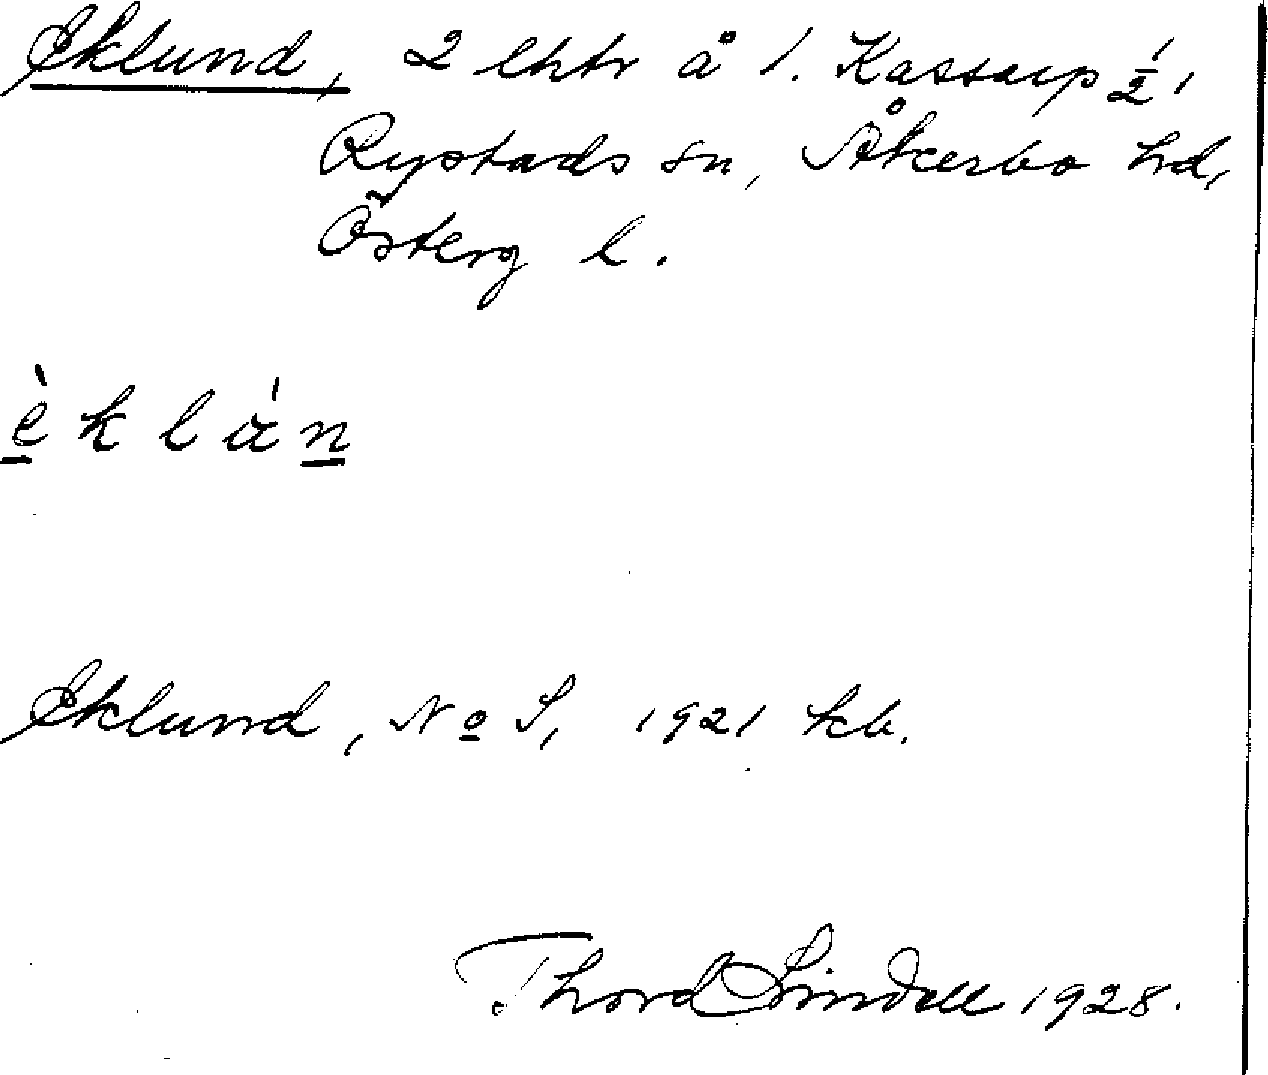 Eklund, 2 lhtr å 1. Kassarp ½,
Rystads sn, Åkerbo hd,
Österg l.
èklán
Eklund, No S, 1921 kb.
Thord Lindell 1928.